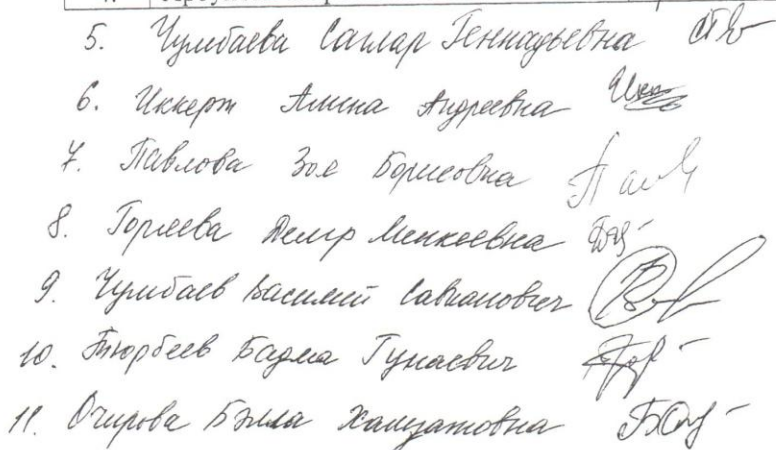 5. Чумбаева Саглар Геннадьевна
6. Иккерт Алина Андреевна
7. Павлова Зоя Борисовна
8. Горяева Делгр Менкеевна
9. Чумбаев Василий
10. Тюрбеев Бадма Гунаевич
11. Очирова Бэлла